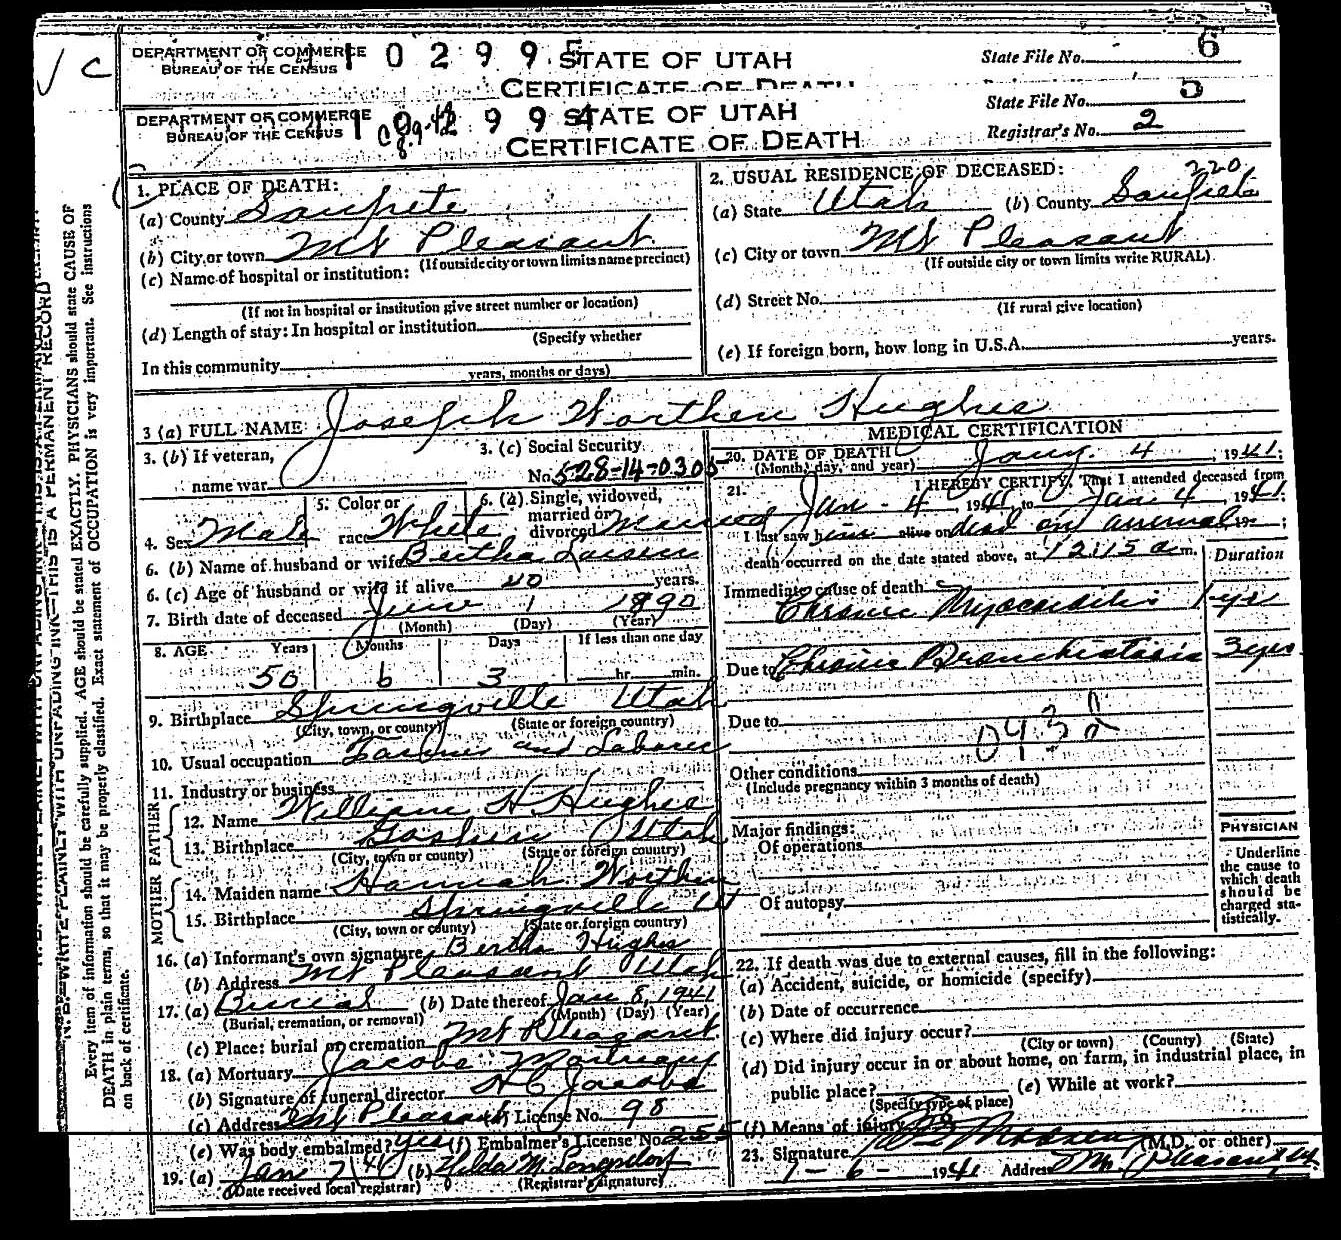 DEPARTMENT OF COMMERCE
BUREAU OF THE CENSUS
STATE OF UTAH
CERTIFICATE OF DEATH
State File No. 6
DEPARTMENT OF COMMERCE
BUREAU OF THE CENSUS
STATE OF UTAH
CERTIFICATE OF DEATH
State File No. 5
Registrar's No. 2
1. PLACE OF DEATH:
(a) County Sanpete
(b) City or town Mt Pleasant
(If outside city or town limits name precinct)
(c) Name of hospital or institution:
(If not in hospital or institution give street number or location)
(d) Length of stay: In hospital or institution
(Specify whether
In this community
years, months or days)
2. USUAL RESIDENCE OF DECEASED: 220
(a) State Utah (b) County Sanpete
(c) City or town Mt Pleasant
(If outside city or town limits write RURAL)
(d) Street No.
(If rural give location)
(e) If foreign born, how long in U.S.A. years.
3 (a) FULL NAME Joseph Worthen Hughes
3. (b) If veteran,
name war
3. (c) Social Security
No. 528-14-0305
4. Sex Male
5. Color or
race White
6. (a) Single, widowed,
married or
divorced Married
6. (b) Name of husband or wife Bertha Larsen
6. (c) Age of husband or wife if alive 40 years.
7. Birth date of deceased June 1 1890
(Month) (Day) (Year)
8. AGE Years Months Days If less than one day
50 6 3 hr. min.
9. Birthplace Springville Utah
(City, town, or county) (State or foreign country)
10. Usual occupation Farmer and Laborer
11. Industry or business
FATHER
12. Name William H. Hughes
13. Birthplace Goshen Utah
(City, town or county) (State or foreign country)
MOTHER
14. Maiden name Hannah Worthen
15. Birthplace Springville Ut
(City, town or county) (State or foreign country)
16. (a) Informant's own signature Bertha Hughes
(b) Address Mt Pleasant Utah
17. (a) Burial (b) Date thereof Jan 8, 1941
(Burial, cremation, or removal) (Month) (Day) (Year)
(c) Place: burial or cremation Mt Pleasant
18. (a) Mortuary Jacobs Mortuary
(b) Signature of funeral director H C Jacobs
(c) Address Mt Pleasant License No. 98
(e) Was body embalmed? yes (f) Embalmer's License No. 255
19. (a) Jan 7 41 (b) Hilda M. Longsdorf
(Date received local registrar) (Registrar's signature)
MEDICAL CERTIFICATION
20. DATE OF DEATH
(Month, day, and year) Jany. 4, 1941;
21. I HEREBY CERTIFY, That I attended deceased from
Jan - 4, 1941 to Jan 4, 1941;
I last saw him alive on dead on arrival 19 ;
death occurred on the date stated above, at 12:15 a m.
Duration
Immediate cause of death
Chronic Myocarditis 1 yr
Due to Chronic Bronchiectasis 3 yrs
Due to
Other conditions
(Include pregnancy within 3 months of death)
Major findings:
Of operations
Of autopsy
PHYSICIAN
Underline
the cause to
which death
should be
charged sta-
tistically.
22. If death was due to external causes, fill in the following:
(a) Accident, suicide, or homicide (specify)
(b) Date of occurrence
(c) Where did injury occur?
(City or town) (County) (State)
(d) Did injury occur in or about home, on farm, in industrial place, in
public place? (e) While at work?
(Specify type of place)
(f) Means of injury
23. Signature (M.D. or other)
1-6-1941 Address Mt. Pleasant Ut.
N. B.—WRITE PLAINLY WITH UNFADING INK—THIS IS A PERMANENT RECORD
Every item of information should be carefully supplied. AGE should be stated EXACTLY. PHYSICIANS should state CAUSE OF
DEATH in plain terms, so that it may be properly classified. Exact statement of OCCUPATION is very important. See instructions
on back of certificate.